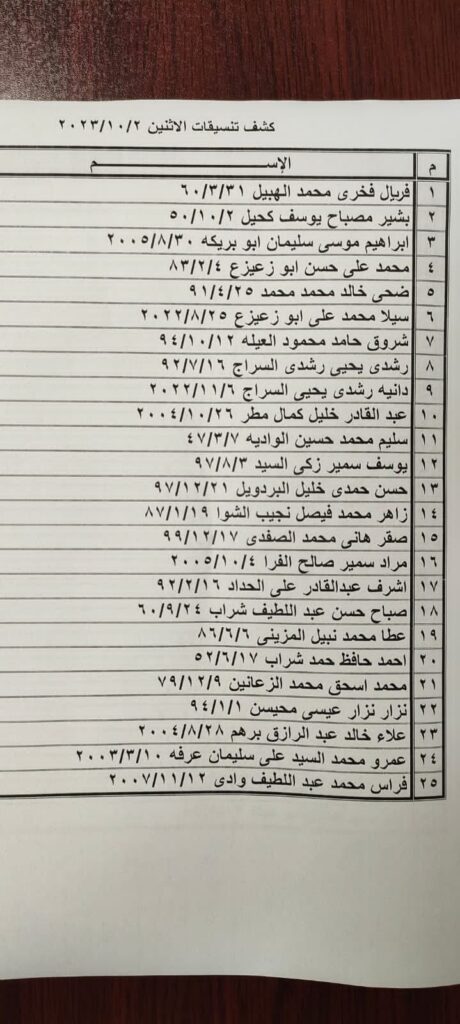 كشف تنسيقات الاثنين ٢٠٢٣/١٠/٢
م الإســـــــــم
١ فريال فخرى محمد الهبيل ٦٠/٣/٣١
٢ بشير مصباح يوسف كحيل ٥٠/١٠/٢
٣ ابراهيم موسى سليمان ابو بريكه ٢٠٠٥/٨/٣٠
٤ محمد على حسن ابو زعيزع ٨٣/٢/٤
٥ ضحى خالد محمد محمد ٩١/٤/٢٥
٦ سيلا محمد على ابو زعيزع ٢٠٢٢/٨/٢٥
٧ شروق حامد محمود العيله ٩٤/١٠/١٢
٨ رشدى يحيى رشدى السراج ٩٢/٧/١٦
٩ دانيه رشدى يحيى السراج ٢٠٢٢/١١/٦
١٠ عبد القادر خليل كمال مطر ٢٠٠٤/١٠/٢٦
١١ سليم محمد حسين الواديه ٤٧/٣/٧
١٢ يوسف سمير زكى السيد ٩٧/٨/٣
١٣ حسن حمدى خليل البردويل ٩٧/١٢/٢١
١٤ زاهر محمد فيصل نجيب الشوا ٨٧/١/١٩
١٥ صقر هانى محمد الصفدى ٩٩/١٢/١٧
١٦ مراد سمير صالح الفرا ٢٠٠٥/١٠/٤
١٧ اشرف عبدالقادر على الحداد ٩٢/٢/١٦
١٨ صباح حسن عبد اللطيف شراب ٦٠/٩/٢٤
١٩ عطا محمد نبيل المزينى ٨٦/٦/٦
٢٠ احمد حافظ حمد شراب ٥٢/٦/١٧
٢١ محمد اسحق محمد الزعانين ٧٩/١٢/٩
٢٢ نزار نزار عيسى محيسن ٩٤/١/١
٢٣ علاء خالد عبد الرازق برهم ٢٠٠٤/٨/٢٨
٢٤ عمرو محمد السيد على سليمان عرفه ٢٠٠٣/٣/١٠
٢٥ فراس محمد عبد اللطيف وادى ٢٠٠٧/١١/١٢